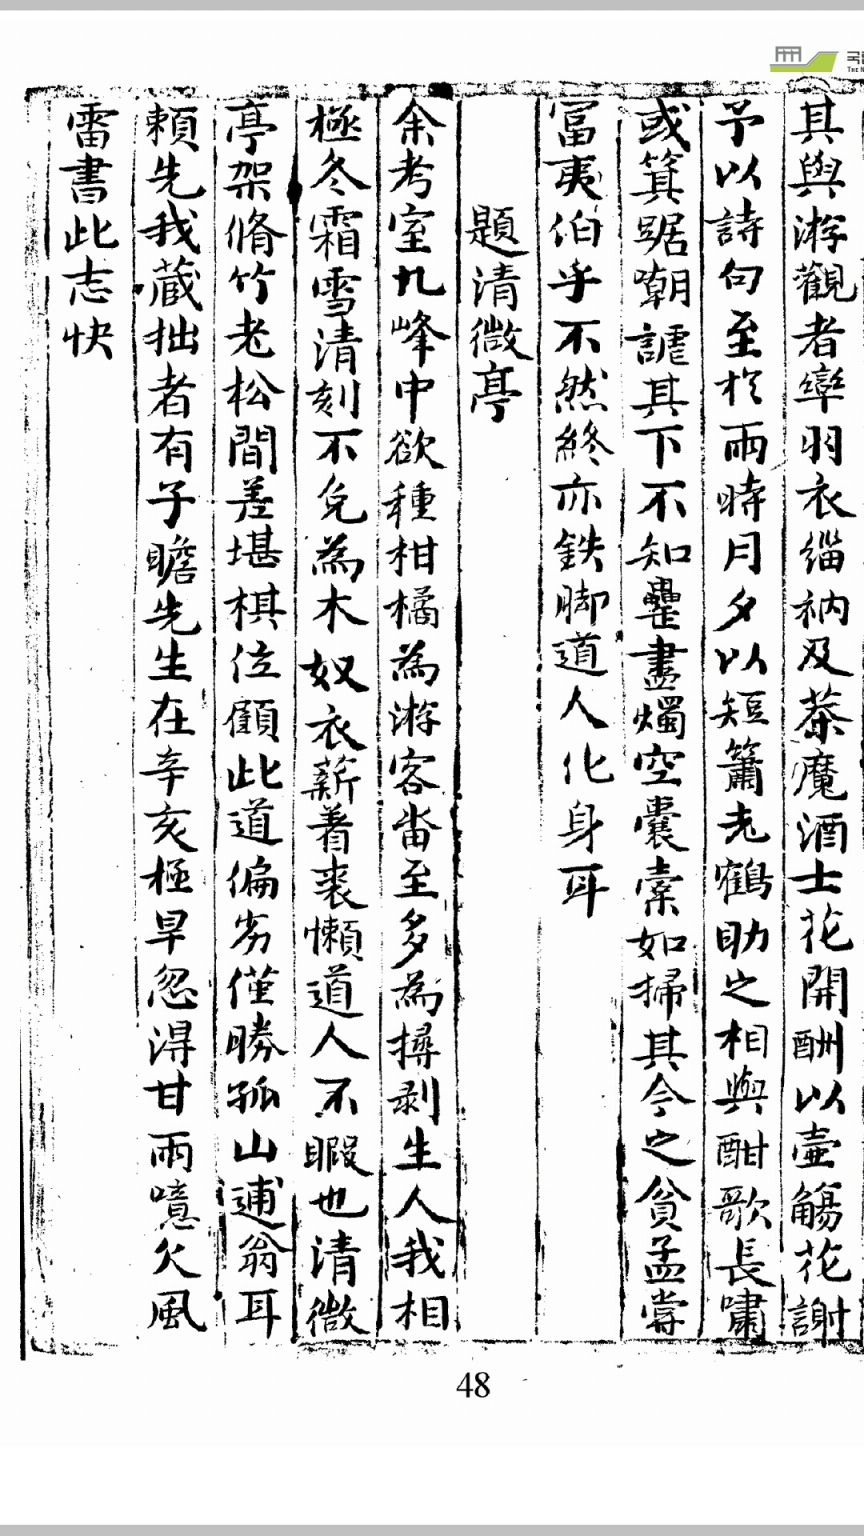 其與游觀者率羽衣緇衲及茶魔酒士花開酬以壷觴花謝
予以詩句至於雨時月夕以短簫老鶴助之相與酣歌長嘯
或箕踞嘲謔其下不知罍盡燭空囊橐如掃其今之貧孟嘗
冨夷伯乎不然終亦鉄脚道人化身耳
題清微亭
余考室九峰中欲種柑橘為游客畨至多為撏剥生人我相
極冬霜雪清刻不免為木奴衣薪着裘懶道人不暇也清微
亭架脩竹老松間差堪棋位顧此道偏劣僅勝孤山逋翁耳
賴先我蔵拙者有子瞻先生在辛亥極旱忽淂甘雨噫欠風
雷書此志快
48